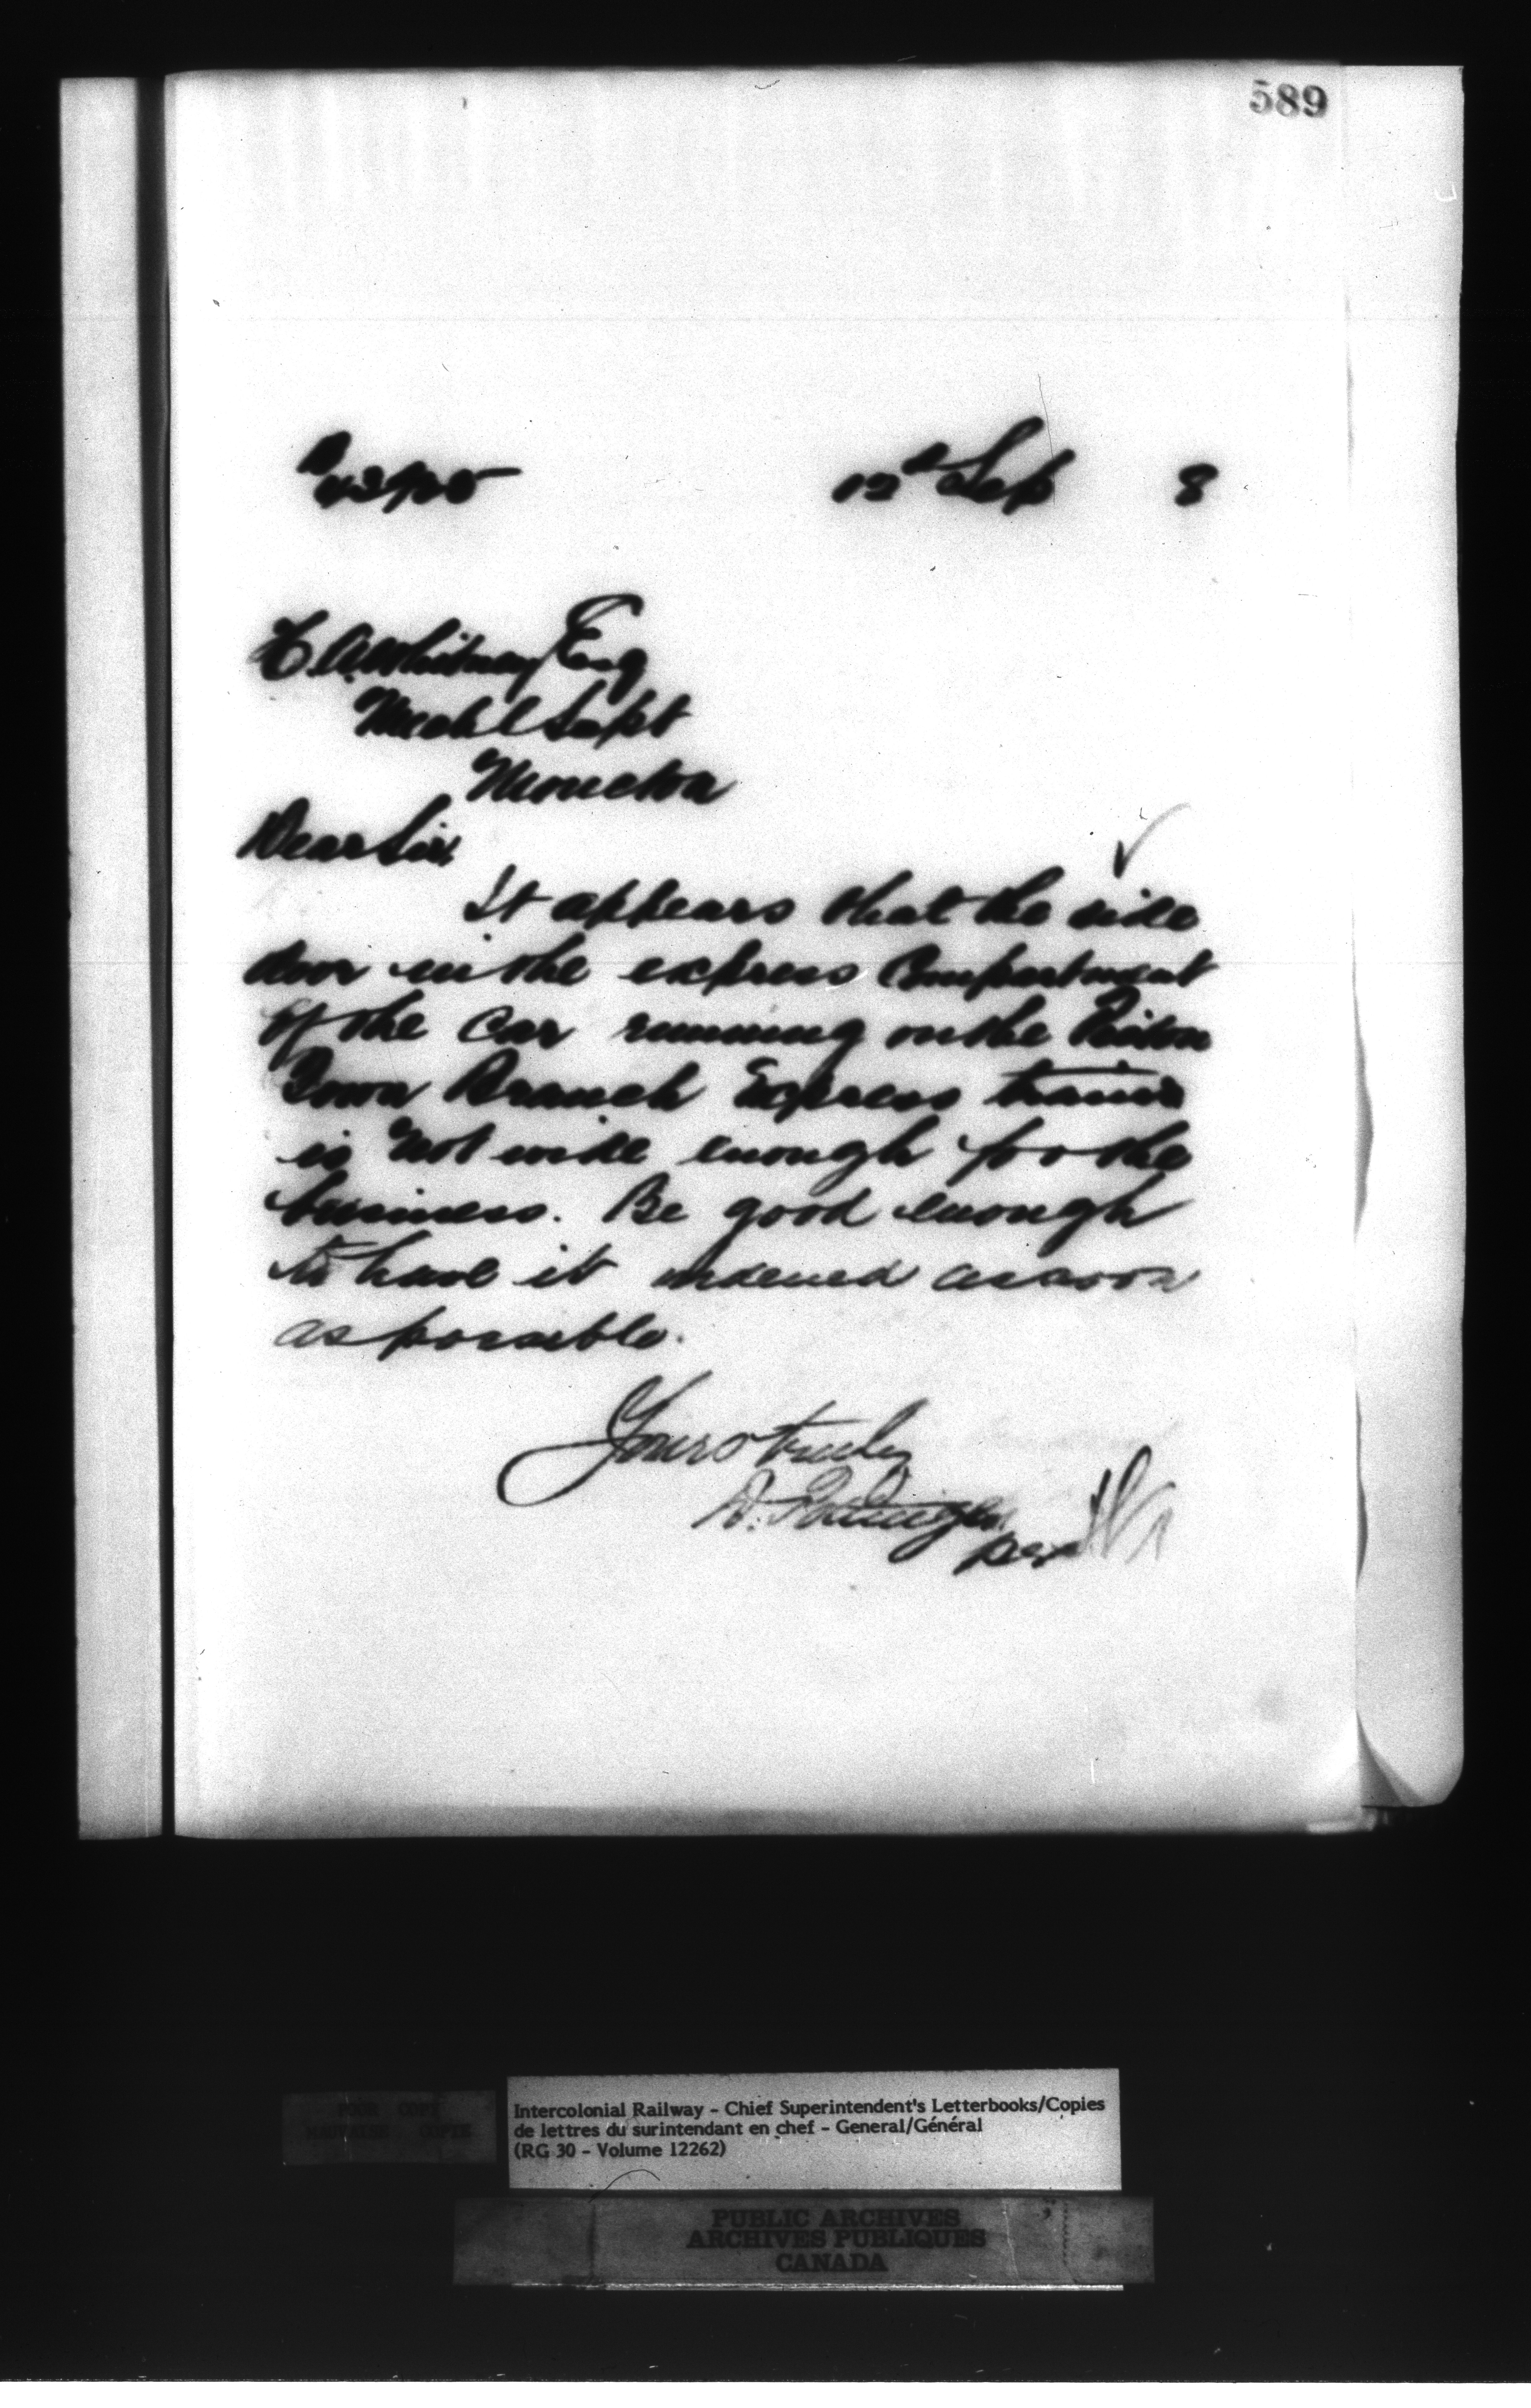 589
12th Sep 8
H. A. Whitney Esq
Mechl Supt
Moncton
Dear Sir,
It appears that the side
door in the express Compartment
of the Car running on the Pictou
Town Branch Express trains
is not wide enough for the
business. Be good enough
to have it widened as soon
as possible.
Yours truly
D. Pottinger
per
Intercolonial Railway - Chief Superintendent's Letterbooks/Copies
de lettres du surintendant en chef - General/Général
(RG 30 - Volume 12262)
POOR COPY
MAUVAISE COPIE
PUBLIC ARCHIVES
ARCHIVES PUBLIQUES
CANADA